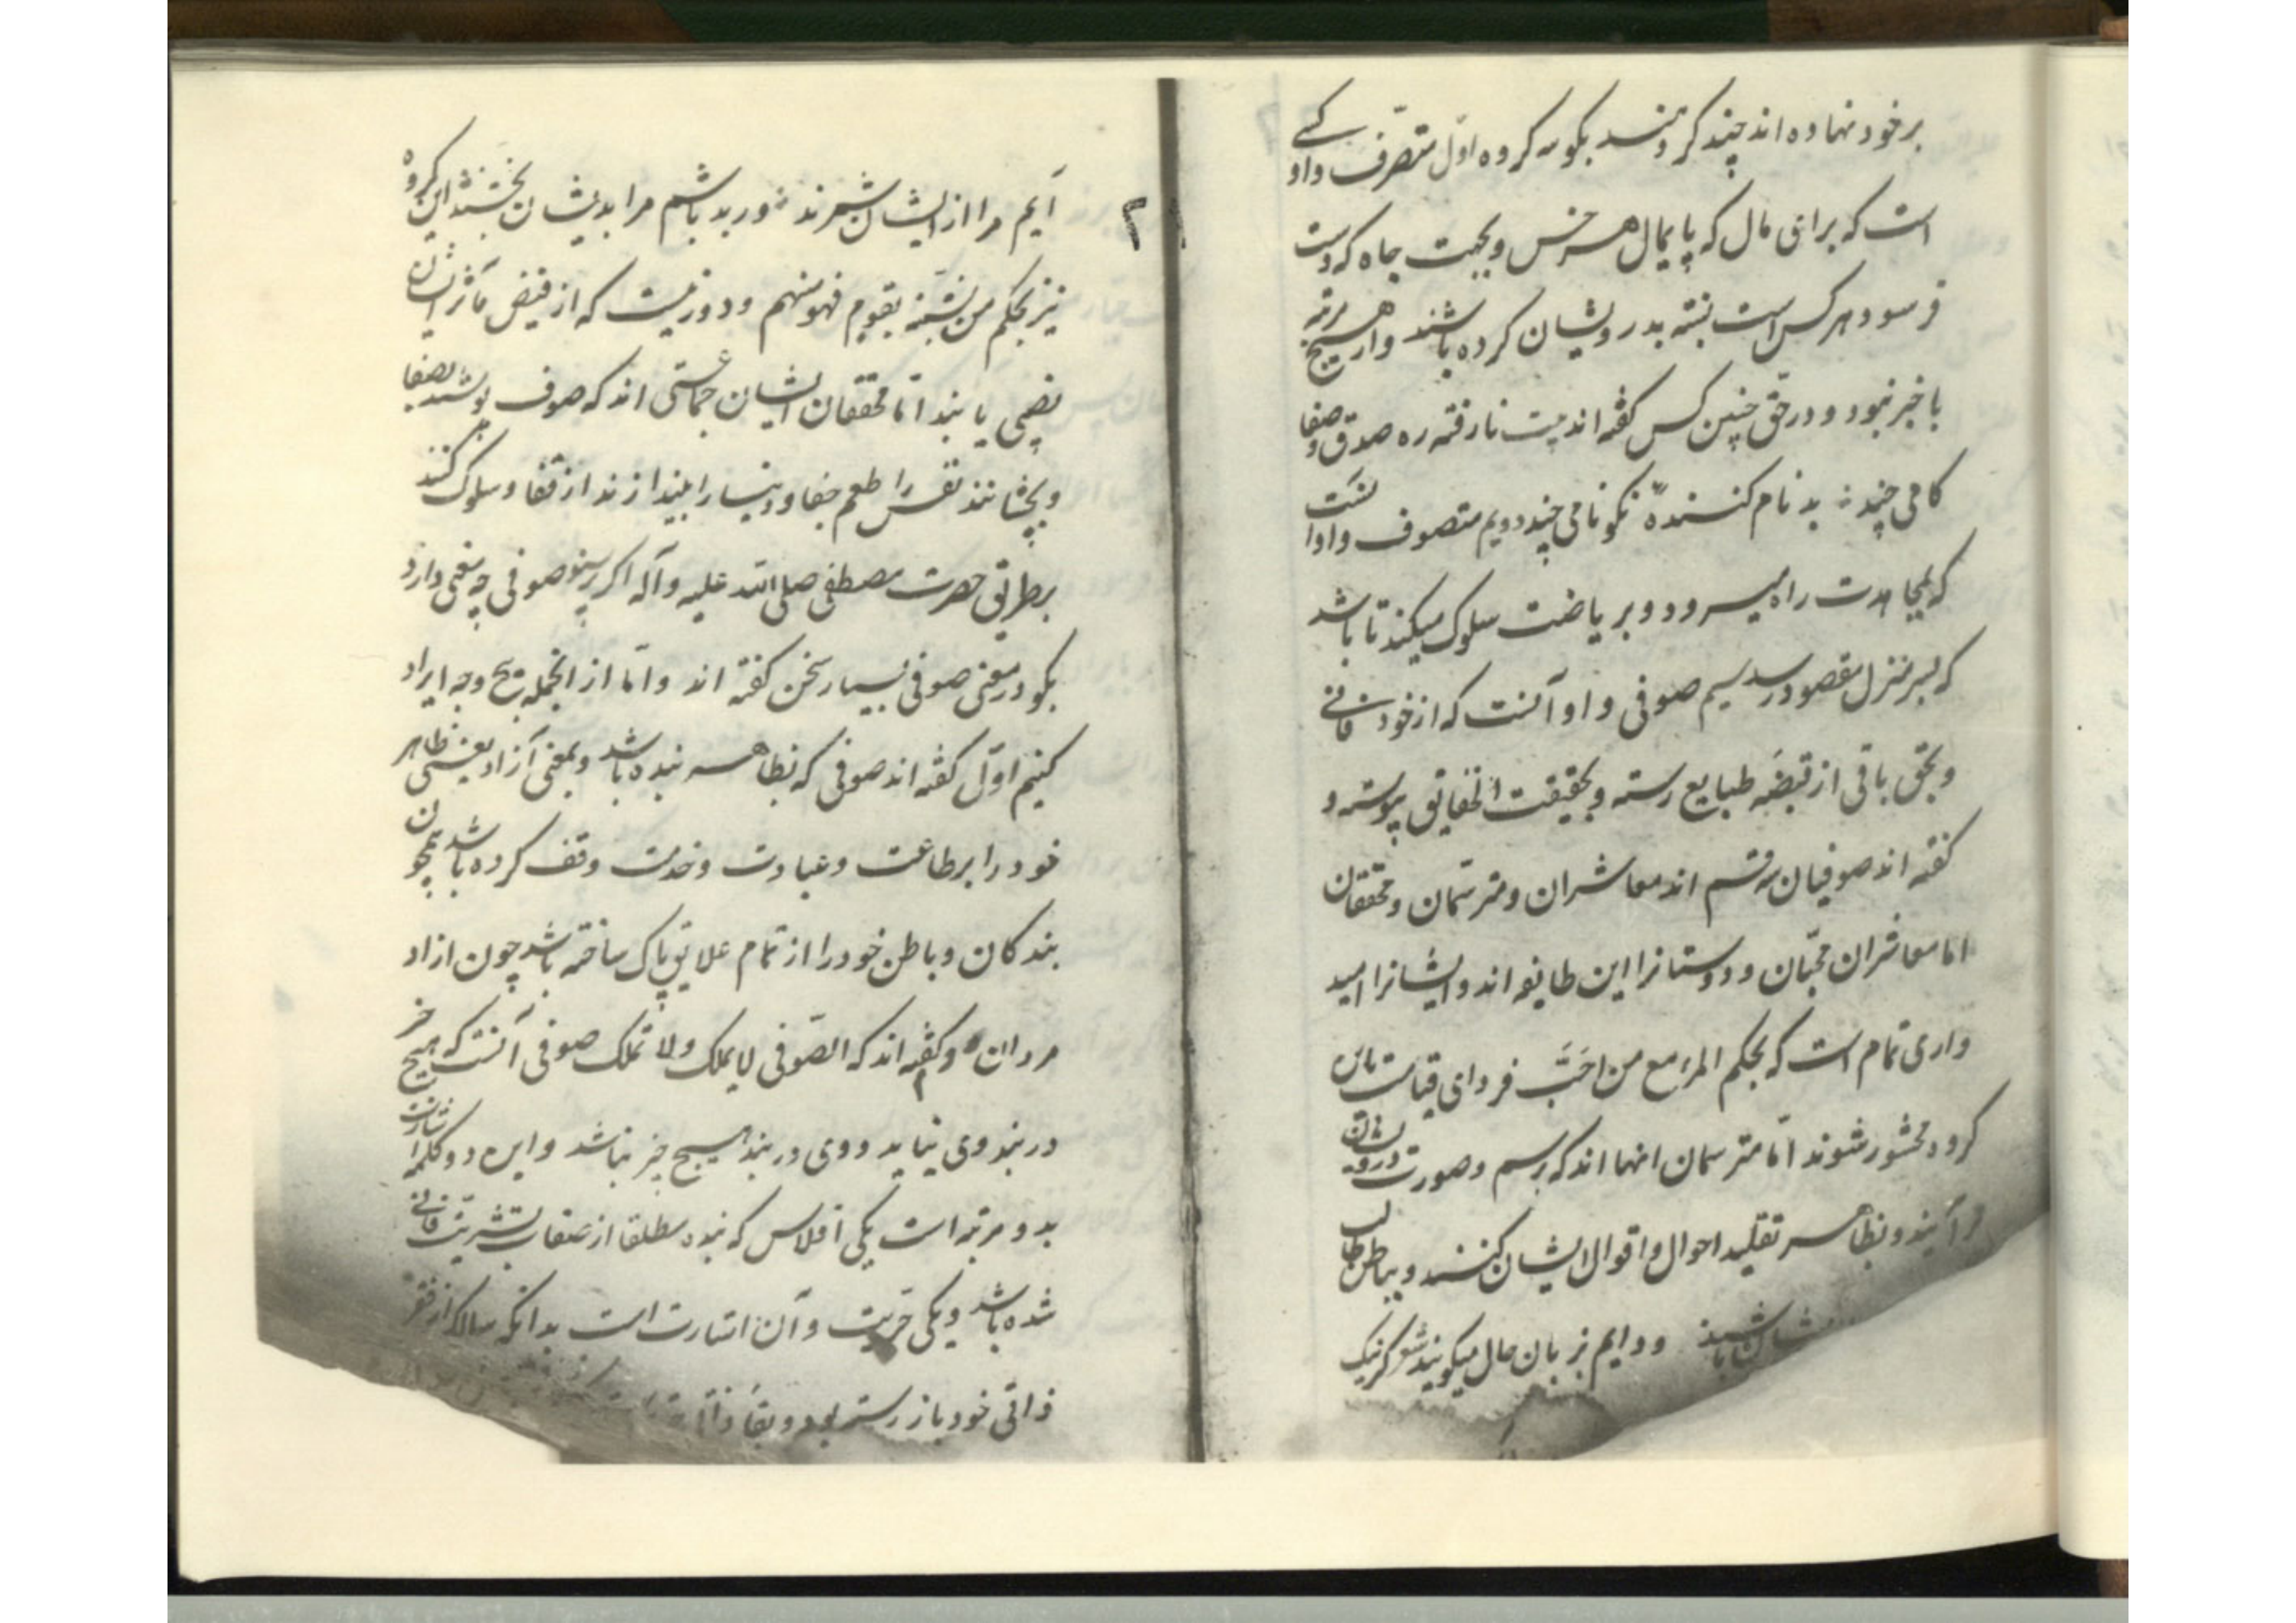 بر خود نهاده اند چند گروهند بگو سه گروه اول متصرف و او کسی
است که برای مال که پایمال هر خس و بجهت جاه که دست
فرسود هر کس است نسبت بدرویشان کرده باشند و از هیچ مرتبه
با خبر نبود و در حق چنین کس گفته اند بیت نارفته ره صدق و صفا
کامی چند بدنام کننده نکو نامی چند دویم متصوف و او آنست
که بمجاهدت راه میرود و بریاضت سلوک میکند تا باشد
که بسر منزل مقصود رسد سیم صوفی و او آنست که از خود فانی
و بحق باقی از قبضه طبایع رسته و بحقیقت الحقایق پیوسته و
گفته اند صوفیان سه قسم اند معاشران و مترسمان و محققان
اما معاشران محبان و دوستانرا این طایفه اند و ایشانرا امید
واری تمام است که بحکم المرء مع من احب فردای قیامت باین
گروه محشور شوند اما مترسمان انها اند که برسم و صورت درویشان
بر آیند و بظاهر تقلید احوال و اقوال ایشان کنند و بباطن طالب
ایشان باشند و دایم بزبان حال میگویند شعر گر نیک
۲
آیم مرا از ایشان شمرند ور بد باشم مرا بدیشان بخشند این گروه
نیز بحکم من تشبه بقوم فهو منهم و دور نیست که از فیض مآثر ایشان
نصیبی یابند اما محققان ایشان جماعتی اند که صوف پوشند بصفا
و بچشانند نفس را طعم جفا و دنیا را بیندازند از قفا و سلوک کنند
بر طریق حضرت مصطفی صلی الله علیه و آله اگر پرسند صوفی چه معنی دارد
بگو در معنی صوفی بسیار سخن گفته اند و اما از انجمله پنج وجه ایراد
کنیم اول گفته اند صوفی که بظاهر بنده باشد و بمعنی آزاد یعنی ظاهر
خود را بر طاعت و عبادت و خدمت وقف کرده باشد همچون
بندگان و باطن خود را از تمام علایق پاک ساخته باشد چون ازاد
مردان ۲ و گفته اند که الصوفی لا یملک و لا تملک صوفی آنست که هیچ چیز
در بند وی نیاید و وی در بند هیچ چیز نباشد و این دو کلمه اشارت
بدو مرتبه است یکی افلاس که بنده مطلقا از صفات بشریت فانی
شده باشد و یکی حریت و آن اشارت است بدانکه سالک از فقر
ذاتی خود باز رسته بود و بغنا ذاتی